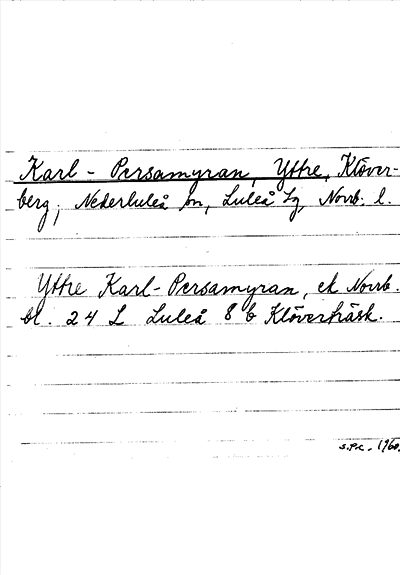 Karl-Persamyran, Yttre, Klöver-
berg, Nederluleå sn, Luleå tg, Norrb. l.
Yttre Karl-Persamyran, ek Norrb.
bl. 24 L Luleå 8 b Klöverträsk.
1960.